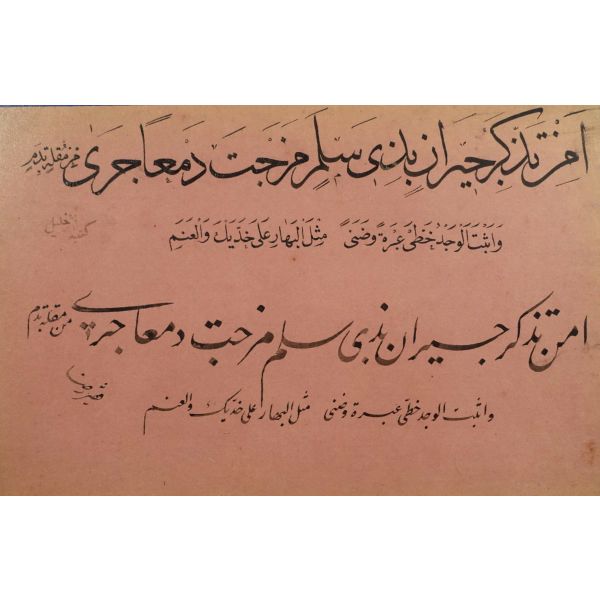 امن تذكر جيران بذي سلم مزجت دمعا جرى من مقلة بدم
واثبت الوجد خطى عبرة وضنى مثل البهار على خديك والعنم
كتبه خليل
امن تذكر جيران بذي سلم مزجت دمعا جرى من مقلة بدم
واثبت الوجد خطى عبرة وضنى مثل البهار على خديك والعنم